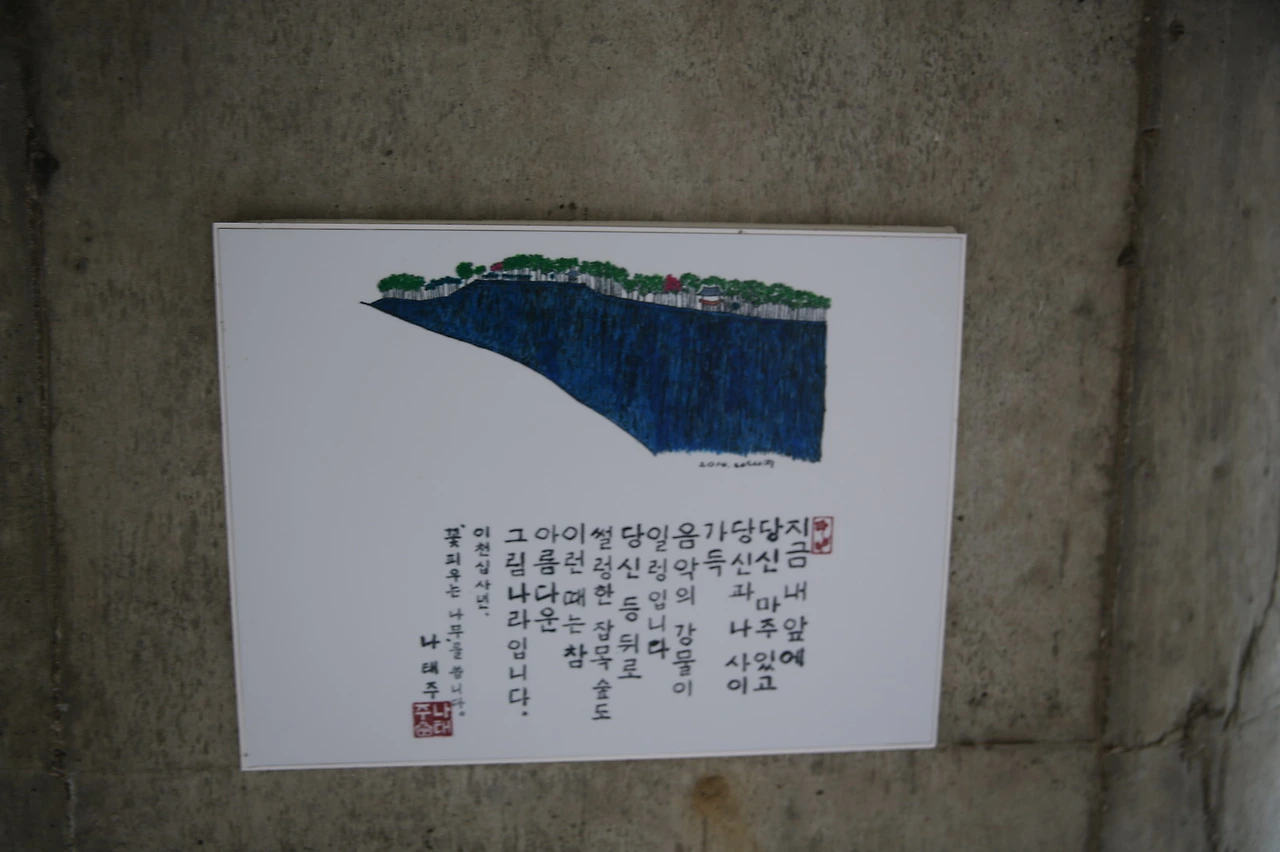 지금 내 앞에
당신 마주 있고
당신과 나 사이
가득
음악의 강물이
일렁입니다
당신 등 뒤로
썰렁한 잡목 숲도
이런 때는 참
아름다운
그림 나라입니다.
이천십사년.
꽃 피우는 나무를 봅니다.
나태주